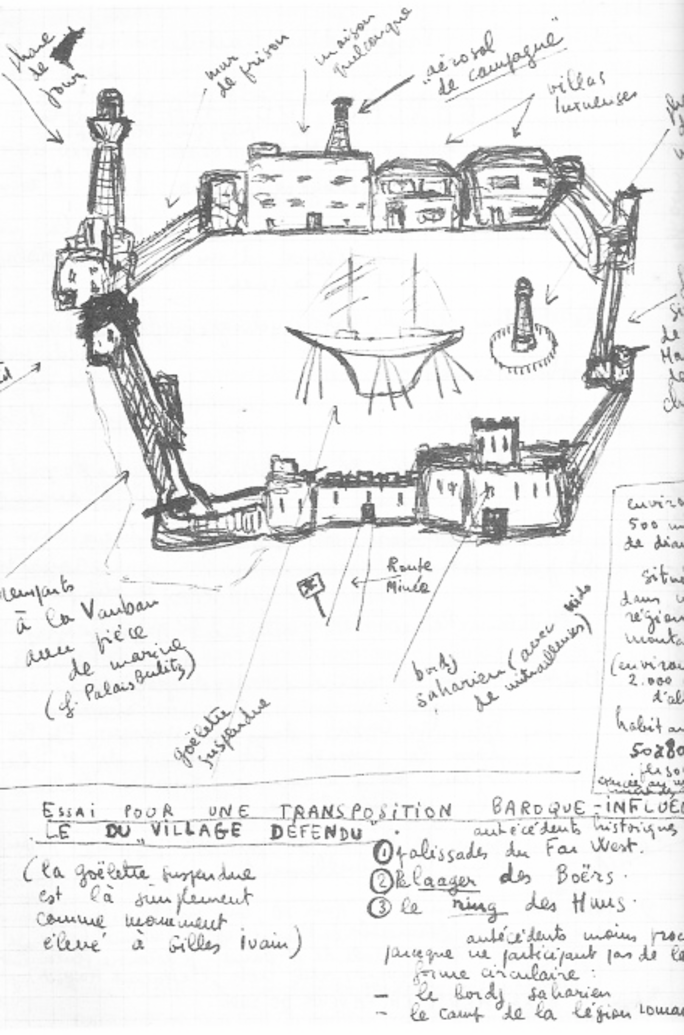 phare
de
jour
mur
de prison
maison
quelconque
"aérosol
de campagne"
villas
luxueuses
remparts
à la Vauban
avec pièce
de marine
Route
Minée
bordj
saharien (avec nids
de mitrailleuses)
goëlette
suspendue
500 m
de
dans
2.000
ESSAI POUR UNE TRANSPOSITION BAROQUE-INFLUE
LE DU "VILLAGE DÉFENDU".
(la goëlette suspendue
est là simplement
comme monument
élevé à Gilles Ivain)
antécédents historiques
① palissades du Far West.
② le laager des Boërs.
③ le ring des Huns.
antécédents moins
parceque ne participant pas de
forme circulaire :
– le bordj saharien
– le camp de la légion